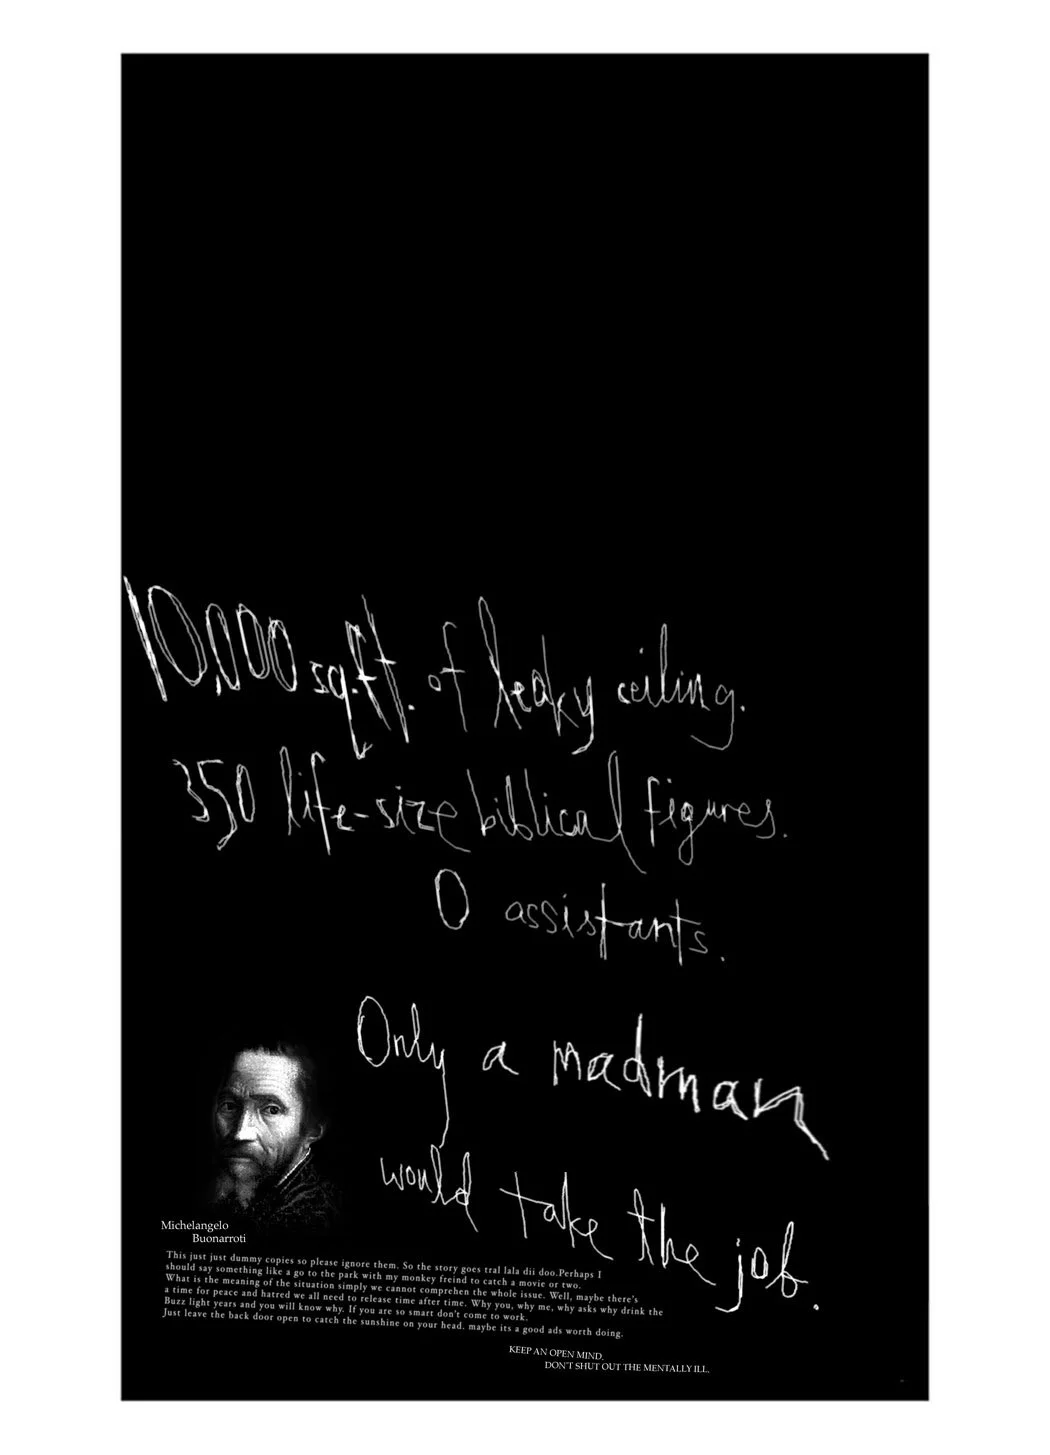 10,000 sq.ft. of leaky ceiling.
350 life-size biblical figures.
0 assistants.
Only a madman
would take the job.
Michelangelo
Buonarroti
This just just dummy copies so please ignore them. So the story goes tral lala dii doo.Perhaps I
should say something like a go to the park with my monkey freind to catch a movie or two.
What is the meaning of the situation simply we cannot comprehen the whole issue. Well, maybe there's
a time for peace and hatred we all need to release time after time. Why you, why me, why asks why drink the
Buzz light years and you will know why. If you are so smart don't come to work.
Just leave the back door open to catch the sunshine on your head. maybe its a good ads worth doing.
KEEP AN OPEN MIND.
DON'T SHUT OUT THE MENTALLY ILL.